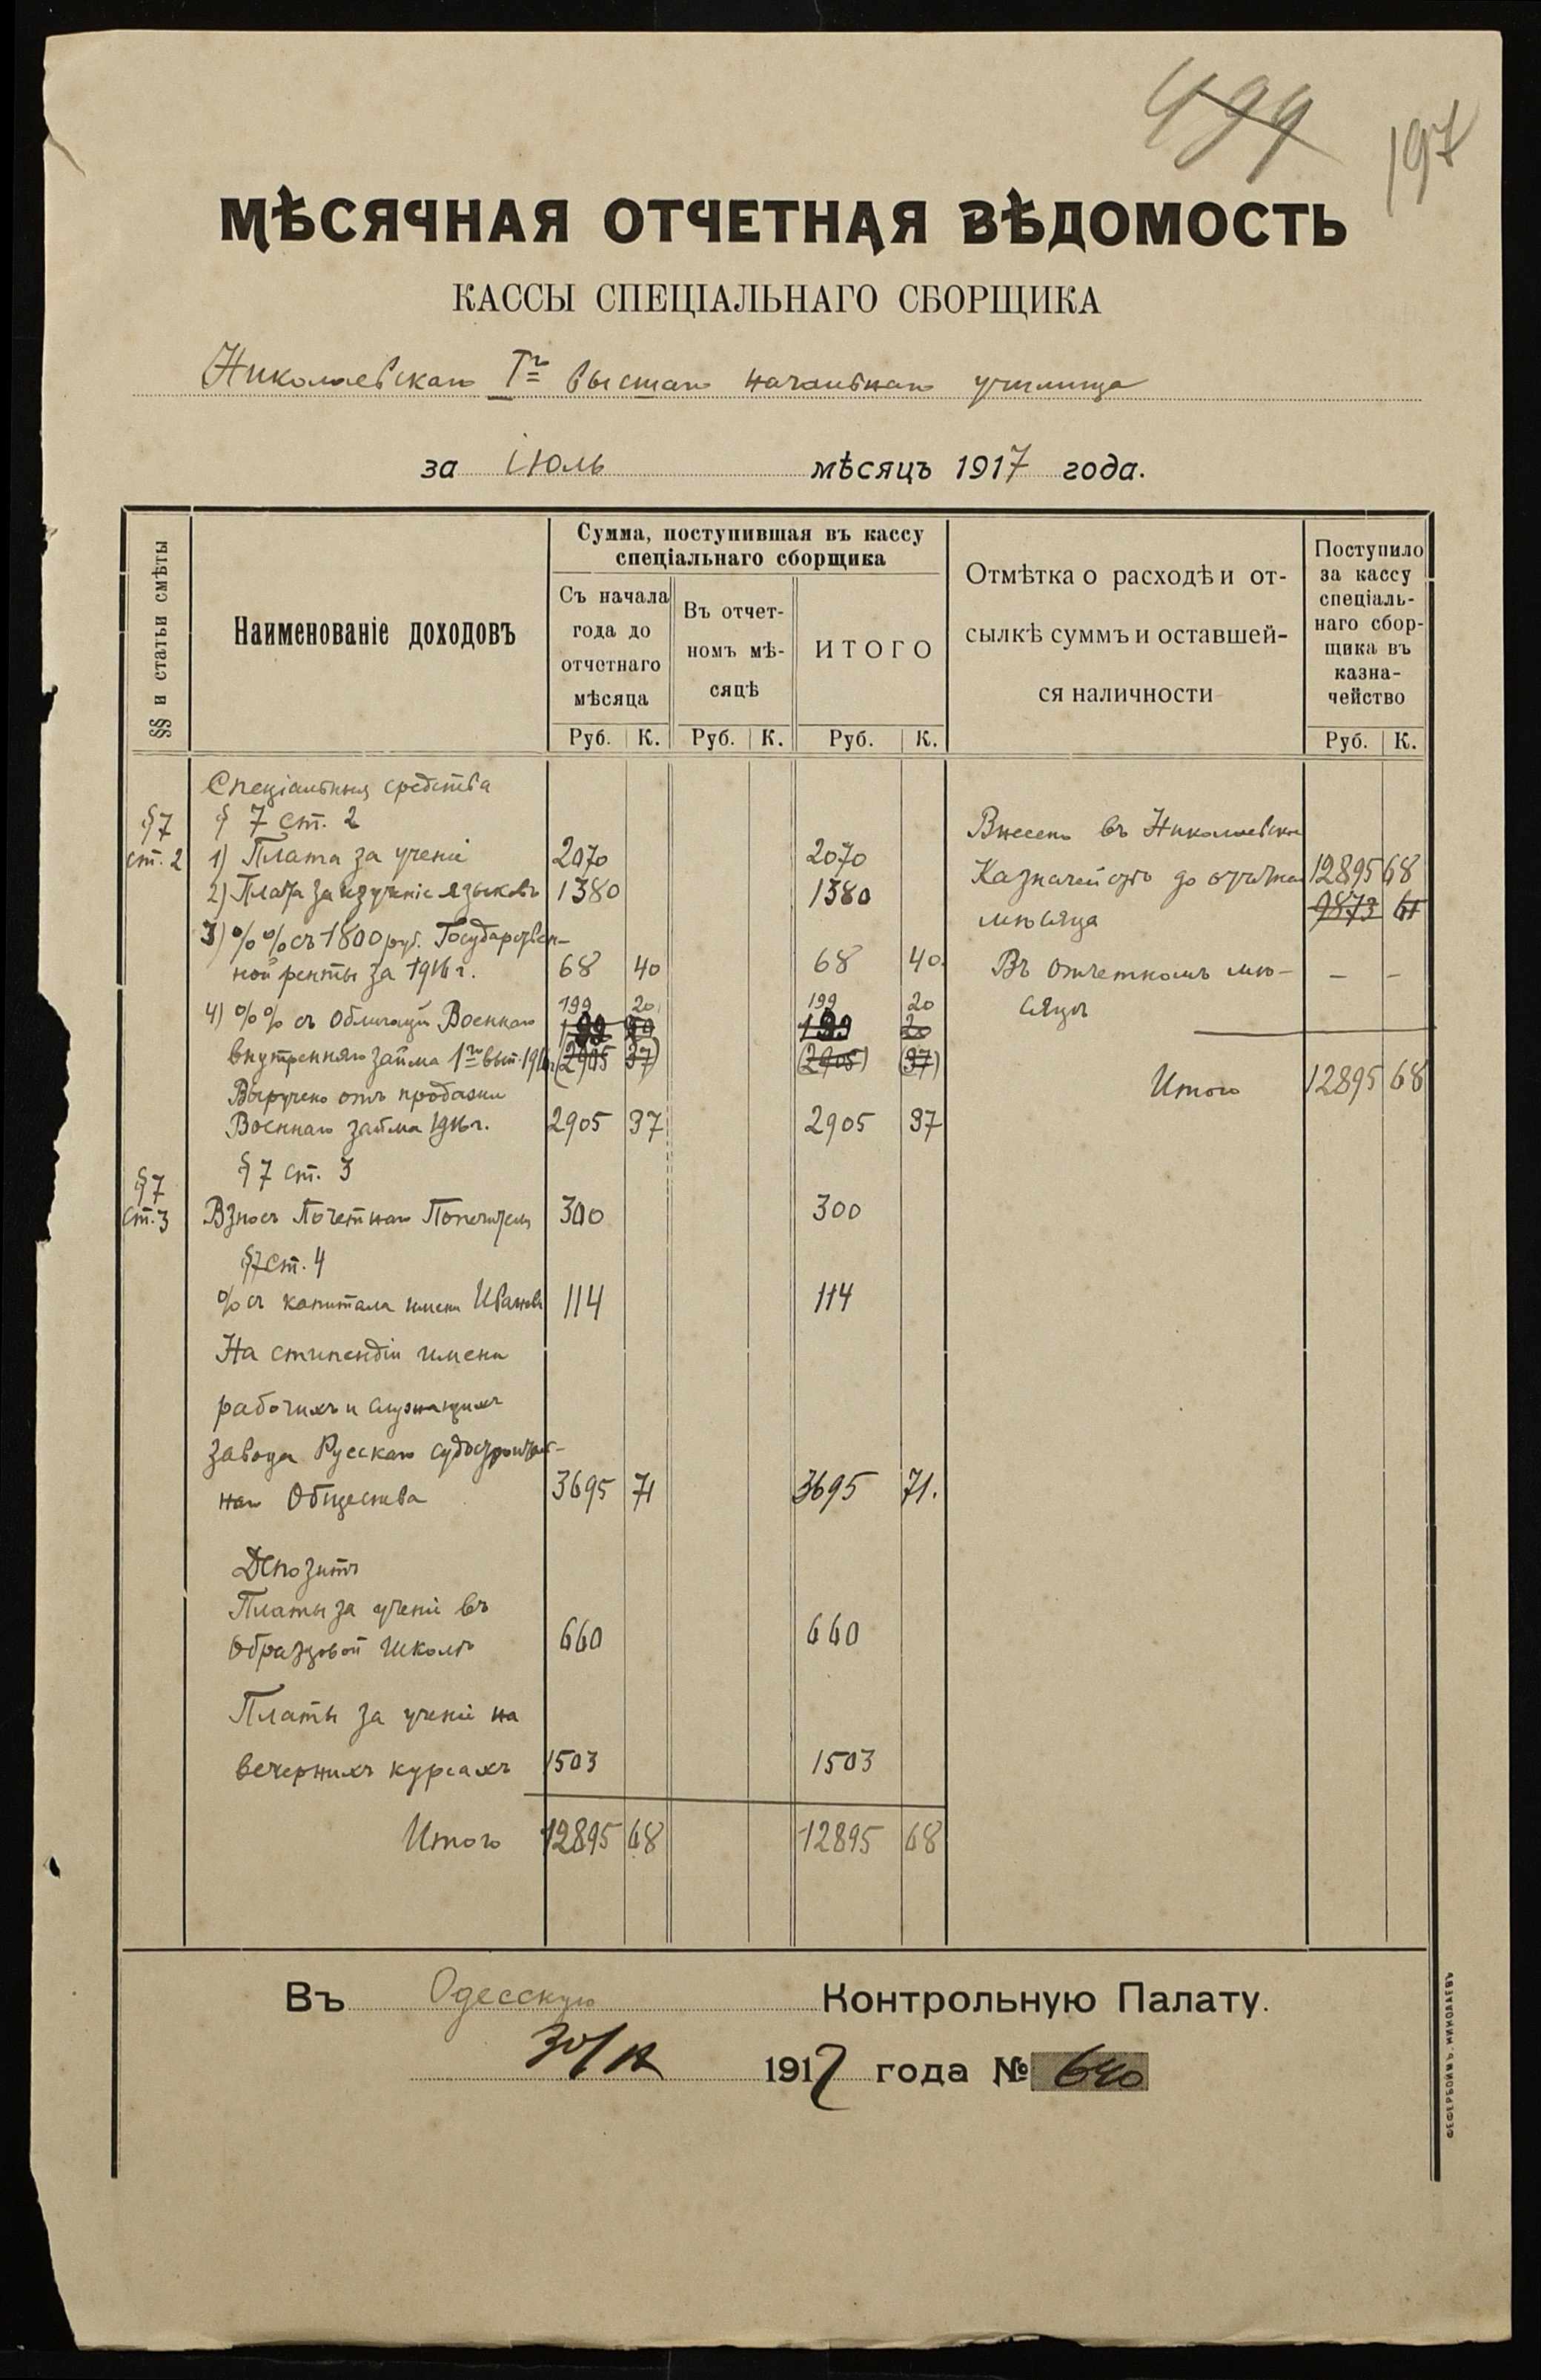 499
197
МѢСЯЧНАЯ ОТЧЕТНАЯ ВѢДОМОСТЬ
КАССЫ СПЕЦІАЛЬНАГО СБОРЩИКА
Николаевскаго Iго высшаго начальнаго училища
за Іюль мѣсяцъ 1917 года.
§§ и статьи смѣты
Наименованіе доходовъ
Сумма, поступившая въ кассу
спеціальнаго сборщика
Съ начала
года до
отчетнаго
мѣсяца
Въ отчет-
номъ мѣ-
сяцѣ
ИТОГО
Отмѣтка о расходѣ и от-
сылкѣ суммъ и оставшей-
ся наличности
Поступило
за кассу
спеціаль-
наго сбор-
щика въ
казна-
чейство
Руб. К. Руб. К. Руб. К. Руб. К.
Спеціальныя средства
§7 § 7 ст. 2
ст. 2 1) Плата за ученіе 2070 2070
2) Плата за изученіе языковъ 1380 1380
3) % % съ 1800 руб. Государствен-
ной ренты за 1916 г. 68 40 68 40
4) % % съ Облигацій Военнаго 199 20 199 20
199 20 199 20
внутренняго займа 1го вып. 1916 г. (2905 37) (2905) (37)
Выручено отъ продажи
Военнаго займа 1916 г. 2905 37 2905 37
§7 § 7 ст. 3
ст. 3 Взносъ Почетнаго Попечителя 300 300
§7 ст. 4
% съ капитала имени Иванова 114 114
На стипендіи имени
рабочихъ и служащихъ
завода Русскаго судостроитель-
наго Общества 3695 71 3695 71.
Депозитъ
Платы за ученіе въ
Образцовой школѣ 660 660
Платы за ученіе на
вечернихъ курсахъ 1503 1503
Итого 12895 68 12895 68
Внесено въ Николаевское
Казначейство до отчетнаго 12895 68
мѣсяца 9873 61
Въ отчетномъ мѣ- – –
сяцѣ
Итого 12895 68
Въ Одесскую Контрольную Палату.
1917 года № 640
ФЕФЕРБОЙМЪ, НИКОЛАЕВЪ